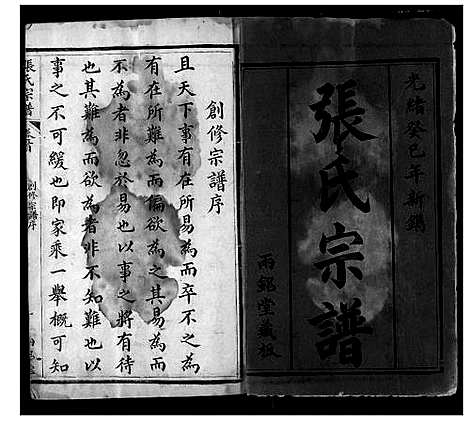 光緒癸巳年新鐫
張氏宗譜
兩銘堂藏板
創修宗譜序
且天下事有在所易為而卒不之為
有在所難為而偏欲為之其易為而
不為者非忽於易也以事之將有待
也其難為而欲為者非不知難也以
事之不可緩也即家乘一舉概可知
張氏宗譜
卷首
創修宗譜序
一